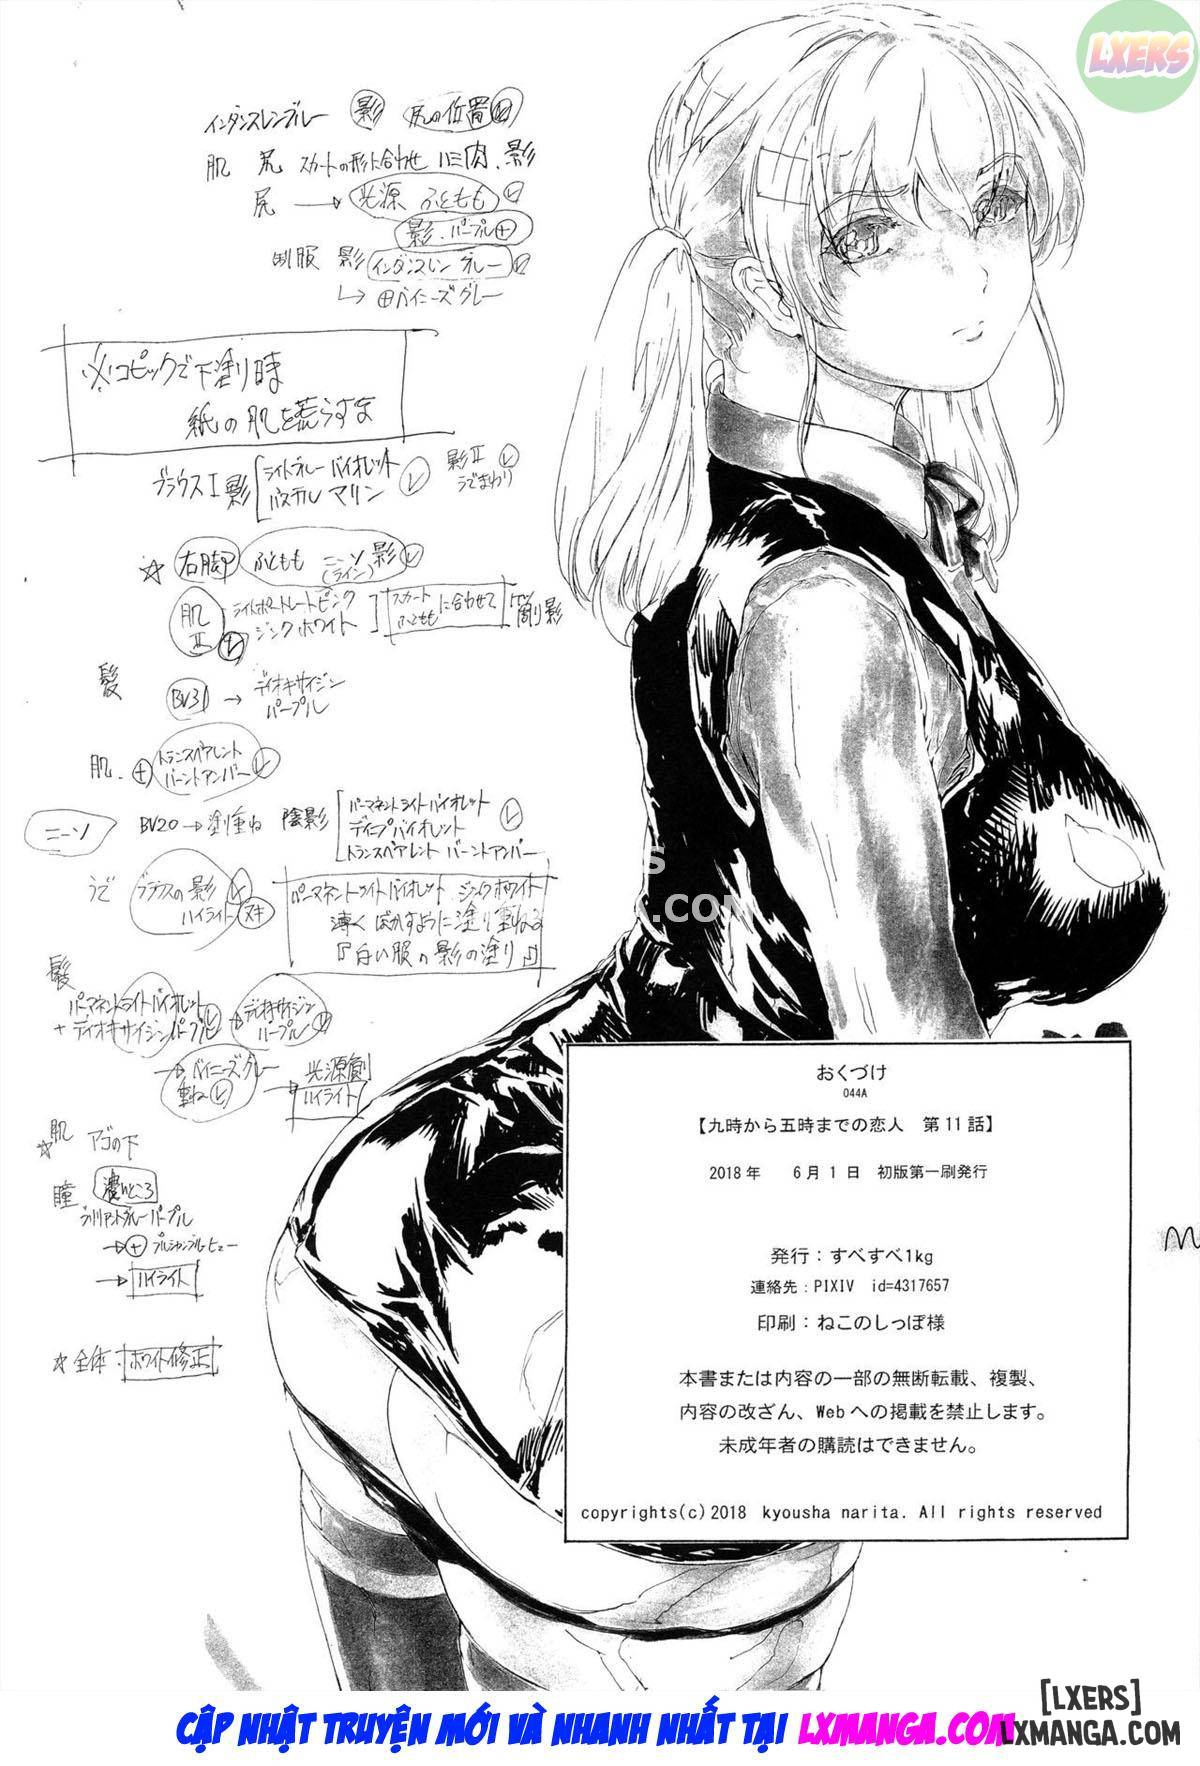 LXERS
インダンスレンブルー 影 尻の位置
肌 尻 スカートの形と合わせ ハミ肉、影
尻 → 光源 ふともも
影・パープル
制服 影 インダンスレン ブルー
ペイニーズグレー
※コピックで下塗り時
紙の肌を荒らすな
ブラウスⅠ影 ライトブルー バイオレット
パステル マリン
影Ⅱ
うでまわり
☆右脚 ふともも ニーソ 影
(ライン)
肌Ⅱ ライトポートレートピンク
ジンクホワイト
スカート
ふともも に合わせて
影
髪
BV31 → ディオキサイジン
パープル
肌・ トランスペアレント
バーントアンバー
ニーソ BV20 → 塗り重ね 陰影
パーマネントライトバイオレット
ディープバイオレット
トランスペアレント バーントアンバー
うで ブラウスの影
ハイライト
パーマネントライトバイオレット ジンクホワイト
薄く ぼかすように塗り重ねる
『白い服の影の塗り』
髪
パーマネントライトバイオレット
+ディオキサイジンパープル
ディオキサイジン
パープル
→ペイニーズグレー
重ね
→ 光源側
ハイライト
☆肌 アゴの下
瞳 濃いところ
ブリリアントブルーパープル
→ プルシャンブルーヒュー
→ ハイライト
☆全体・ホワイト修正
S
.COM
おくづけ
044A
【九時から五時までの恋人 第11話】
2018年 6月1日 初版第一刷発行
発行：すべすべ1kg
連絡先：PIXIV id=4317657
印刷：ねこのしっぽ様
本書または内容の一部の無断転載、複製、
内容の改ざん、Webへの掲載を禁止します。
未成年者の購読はできません。
copyrights(c)2018 kyousha narita. All rights reserved
[LXERS]
LXMANGA.COM
CẬP NHẬT TRUYỆN MỚI VÀ NHANH NHẤT TẠI LXMANGA.COM